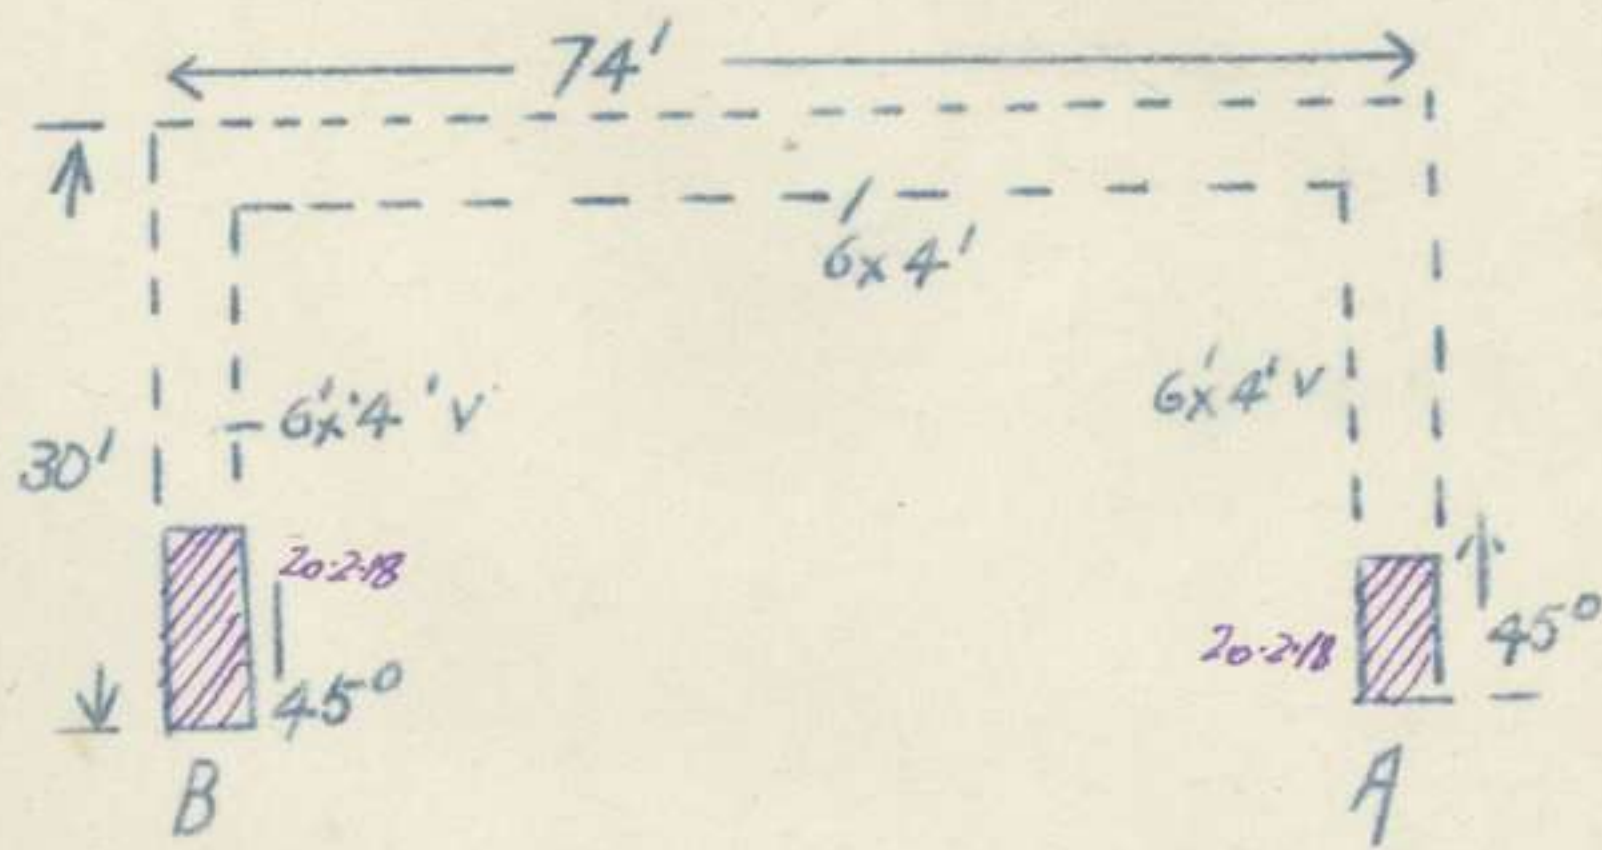 74'
6x4'
6'x4'v
6'x4'v
30'
20·2·18
45°
20·2·18
45°
B
A